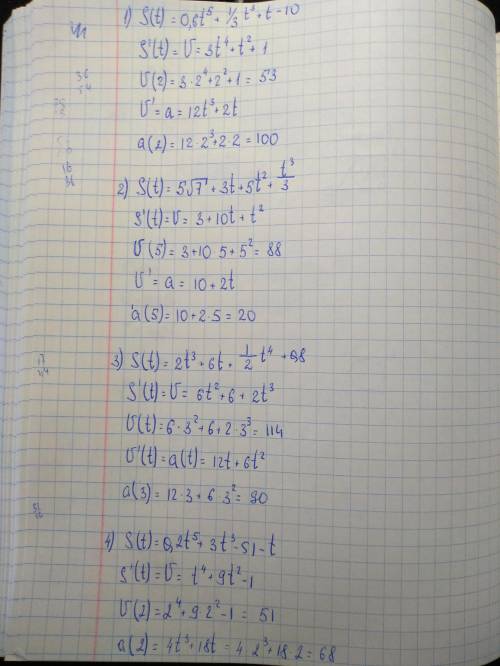 1) S(t) = 0,6t⁵ + 1/3 t³ + t - 10
S'(t) = V = 3t⁴ + t² + 1
V(2) = 3·2⁴ + 2² + 1 = 53
V' = a = 12t³ + 2t
a(2) = 12·2³ + 2·2 = 100
2) S(t) = 5√7 + 3t + 5t² + t³/3
S'(t) = V = 3 + 10t + t²
V(5) = 3 + 10·5 + 5² = 88
V' = a = 10 + 2t
a(5) = 10 + 2·5 = 20
3) S(t) = 2t³ + 6t + 1/2 t⁴ + 98
S'(t) = V = 6t² + 6 + 2t³
V(t) = 6·3² + 6 + 2·3³ = 114
V'(t) = a(t) = 12t + 6t²
a(3) = 12·3 + 6·3² = 90
4) S(t) = 0,2t⁵ + 3t³ - 51 - t
S'(t) = V = t⁴ + 9t² - 1
V(2) = 2⁴ + 9·2² - 1 = 51
a(2) = 4t³ + 18t = 4·2³ + 18·2 = 68